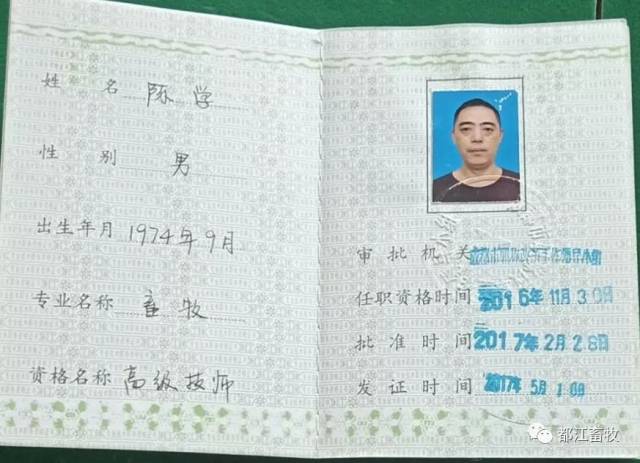 姓 名 陈学
性 别 男
出生年月 1974年9月
专业名称 畜牧
资格名称 高级技师
审批机关
任职资格时间 2016年11月30日
批准时间 2017年2月28日
发证时间 2017年5月10日
都江畜牧